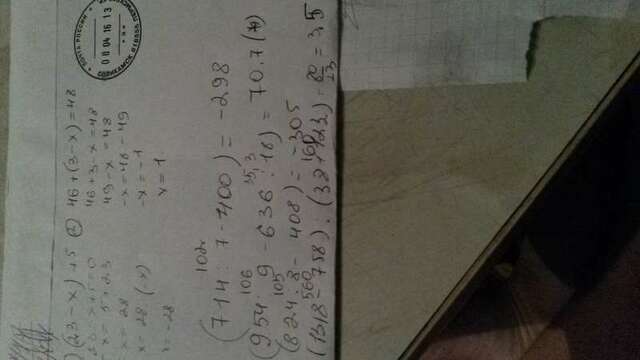 (23-x)+5
② 46+(3-x)=48
-x+5=0
46+3-x=48
x=5+23
49-x=48
x=28
-x=48-49
x=28·(-x)
-x=-1
x=-28
x=1
ПОЧТА РОССИИ
08 04 16 13
СОЛИКАМСК 618555
102
(714:7-400)=-298
106 35,3
(954:9-636:18)=70.7
105
(824:8-408)=-305
560 160
(1318-758):(38+123)=80/23=3,5